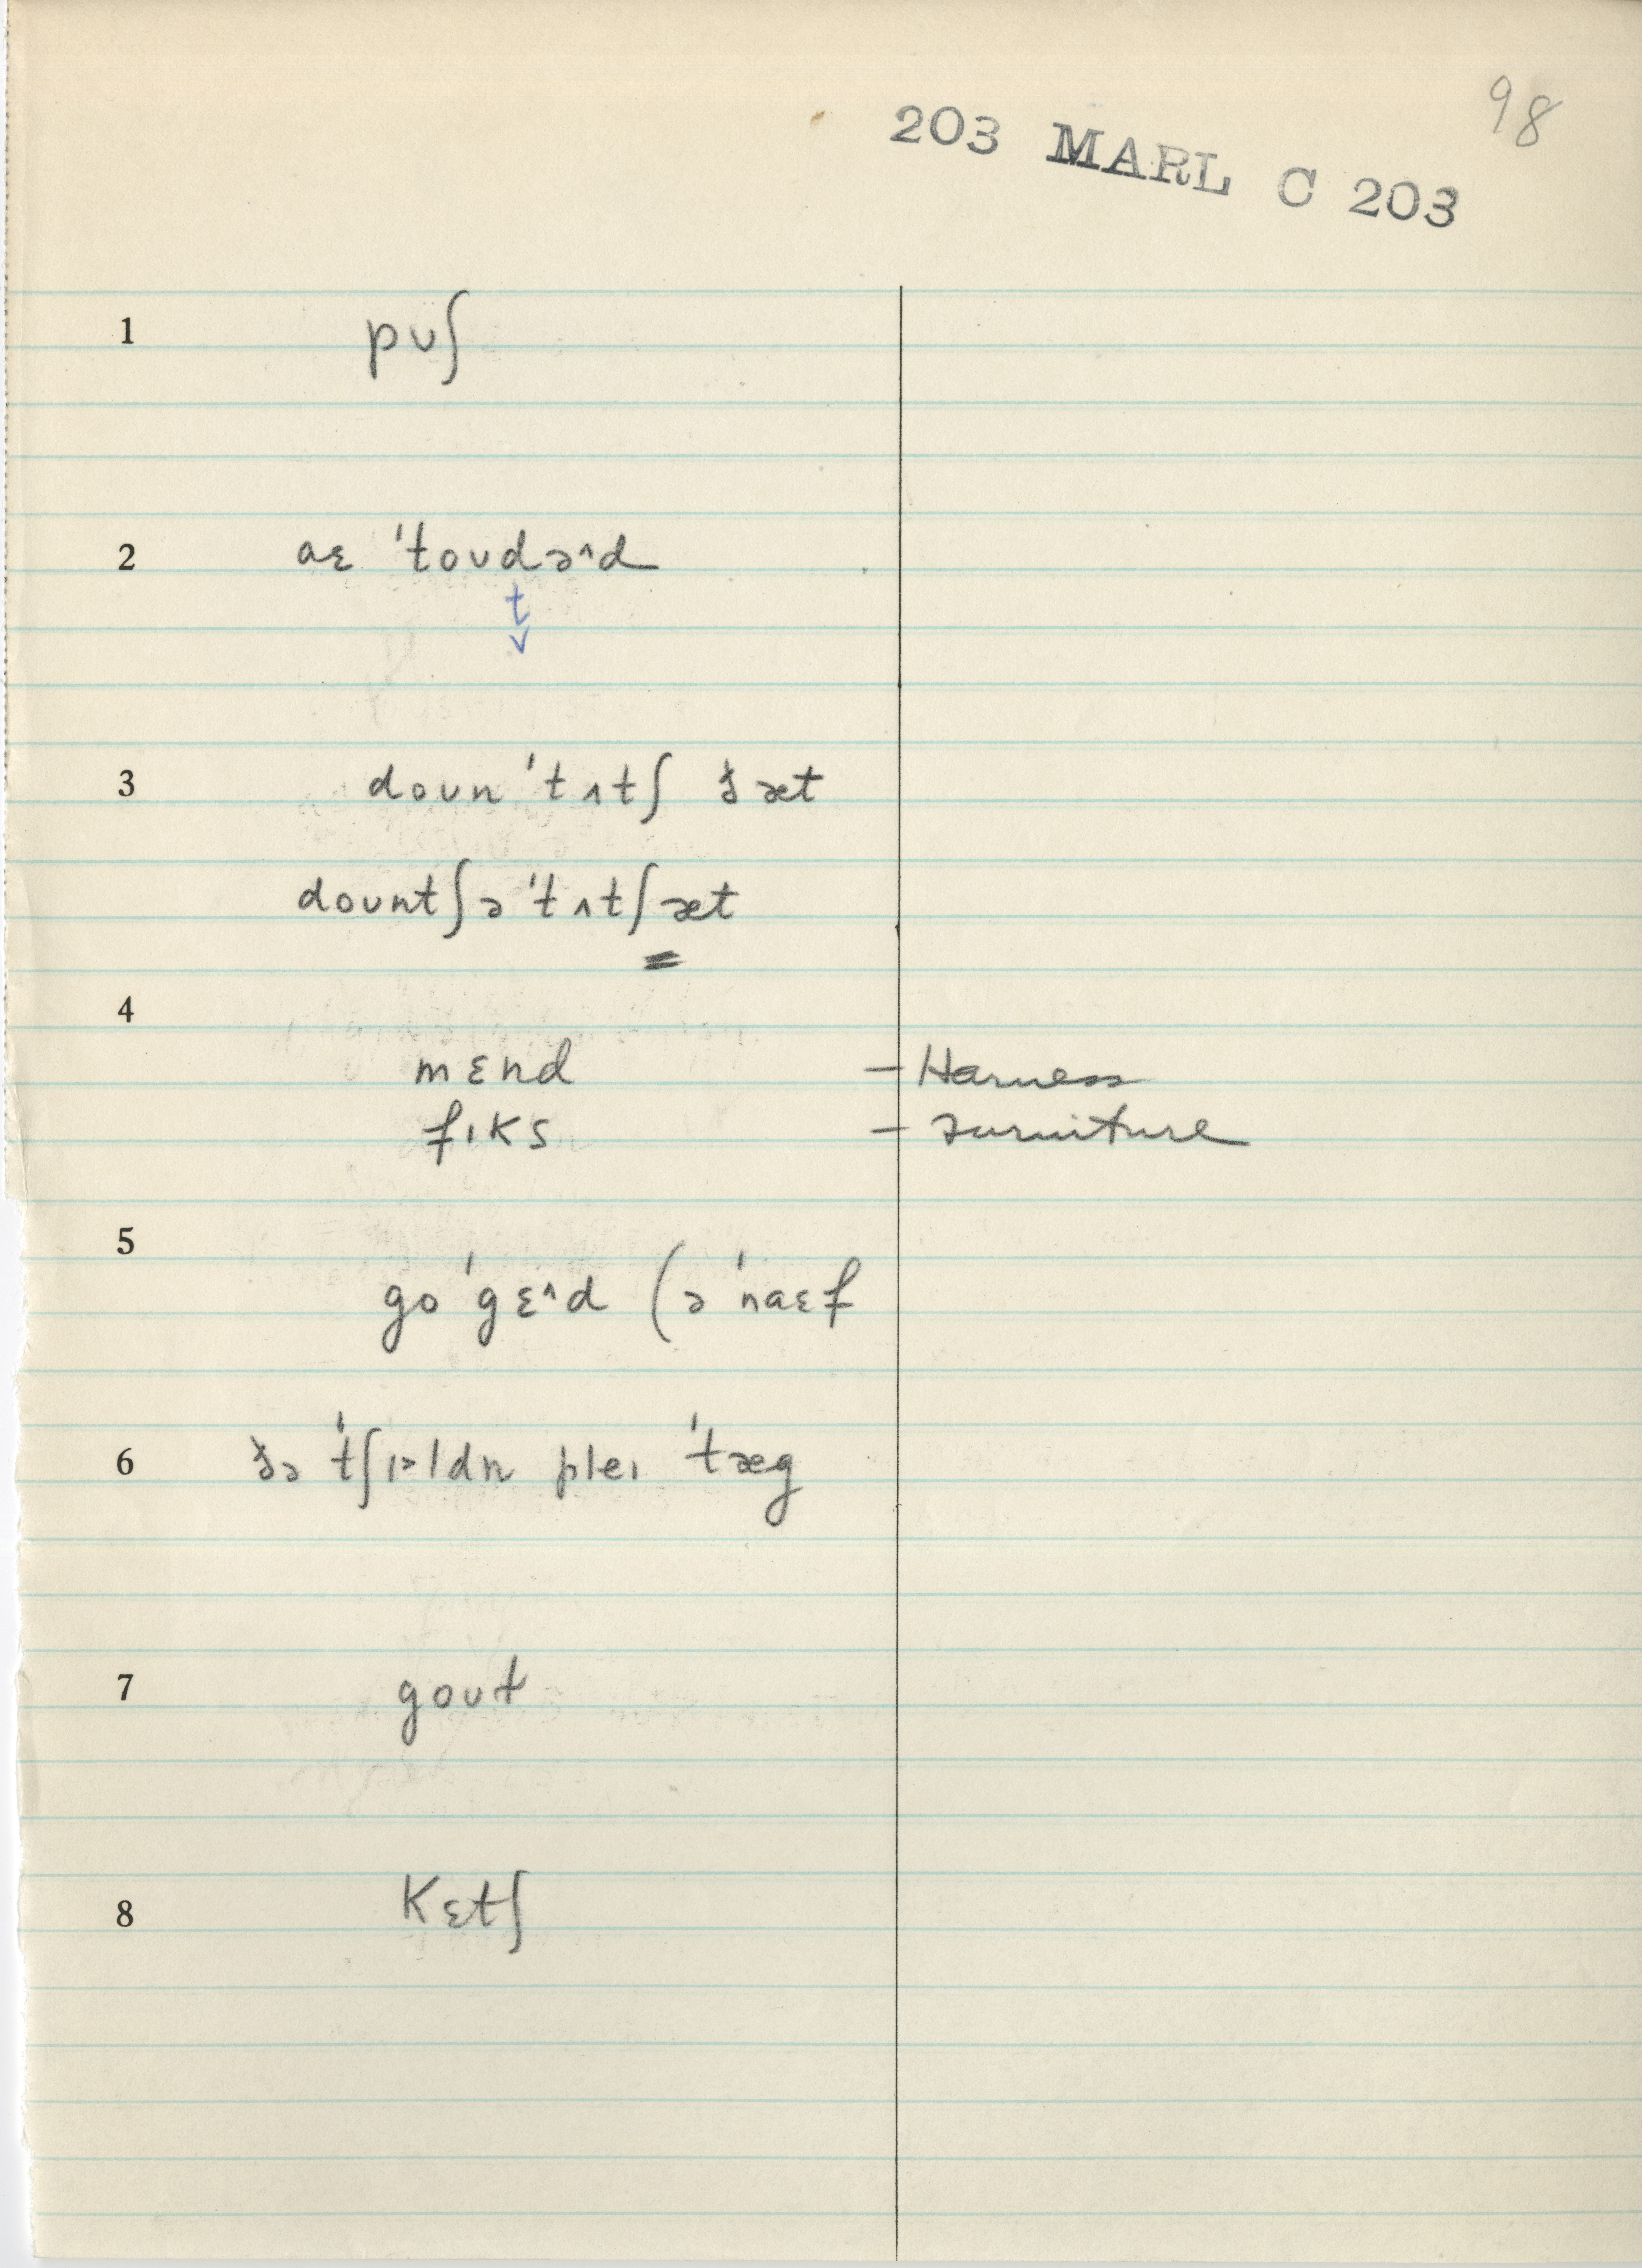 98
203 MARL C 203
1 pʊʃ
2 aɛ 'toʊdə^d
t̬
3 doʊn 'tʌtʃ ðæt
doʊntʃə 'tʌtʃæt
4
mɛnd – Harness
fɪks – Furniture
5
go 'gɛ^d (ə 'naɛf
6 ðə 'tʃɪ>ldn pleɪ 'tæg
7 goʊt
8 kɛtʃ